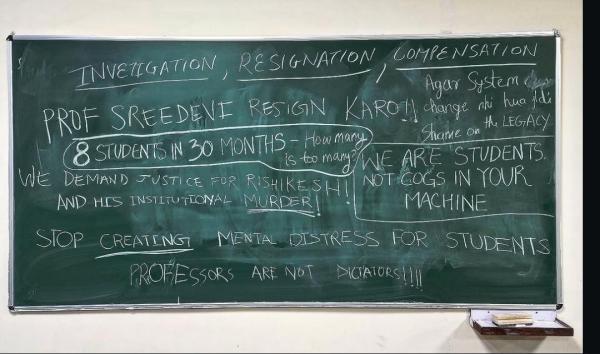 INVETIGATION, RESIGNATION, COMPENSATION
Agar System
change nhi hua
Shame on the LEGACY
PROF SREEDEVI RESIGN KARO!!
8 STUDENTS IN 30 MONTHS - How many
is too many?
WE DEMAND JUSTICE FOR RISHIKESH!
AND HIS INSTITUTIONAL MURDER!
WE ARE STUDENTS.
NOT COGS IN YOUR
MACHINE
STOP CREATING MENTAL DISTRESS FOR STUDENTS
PROFESSORS ARE NOT DICTATORS!!!!